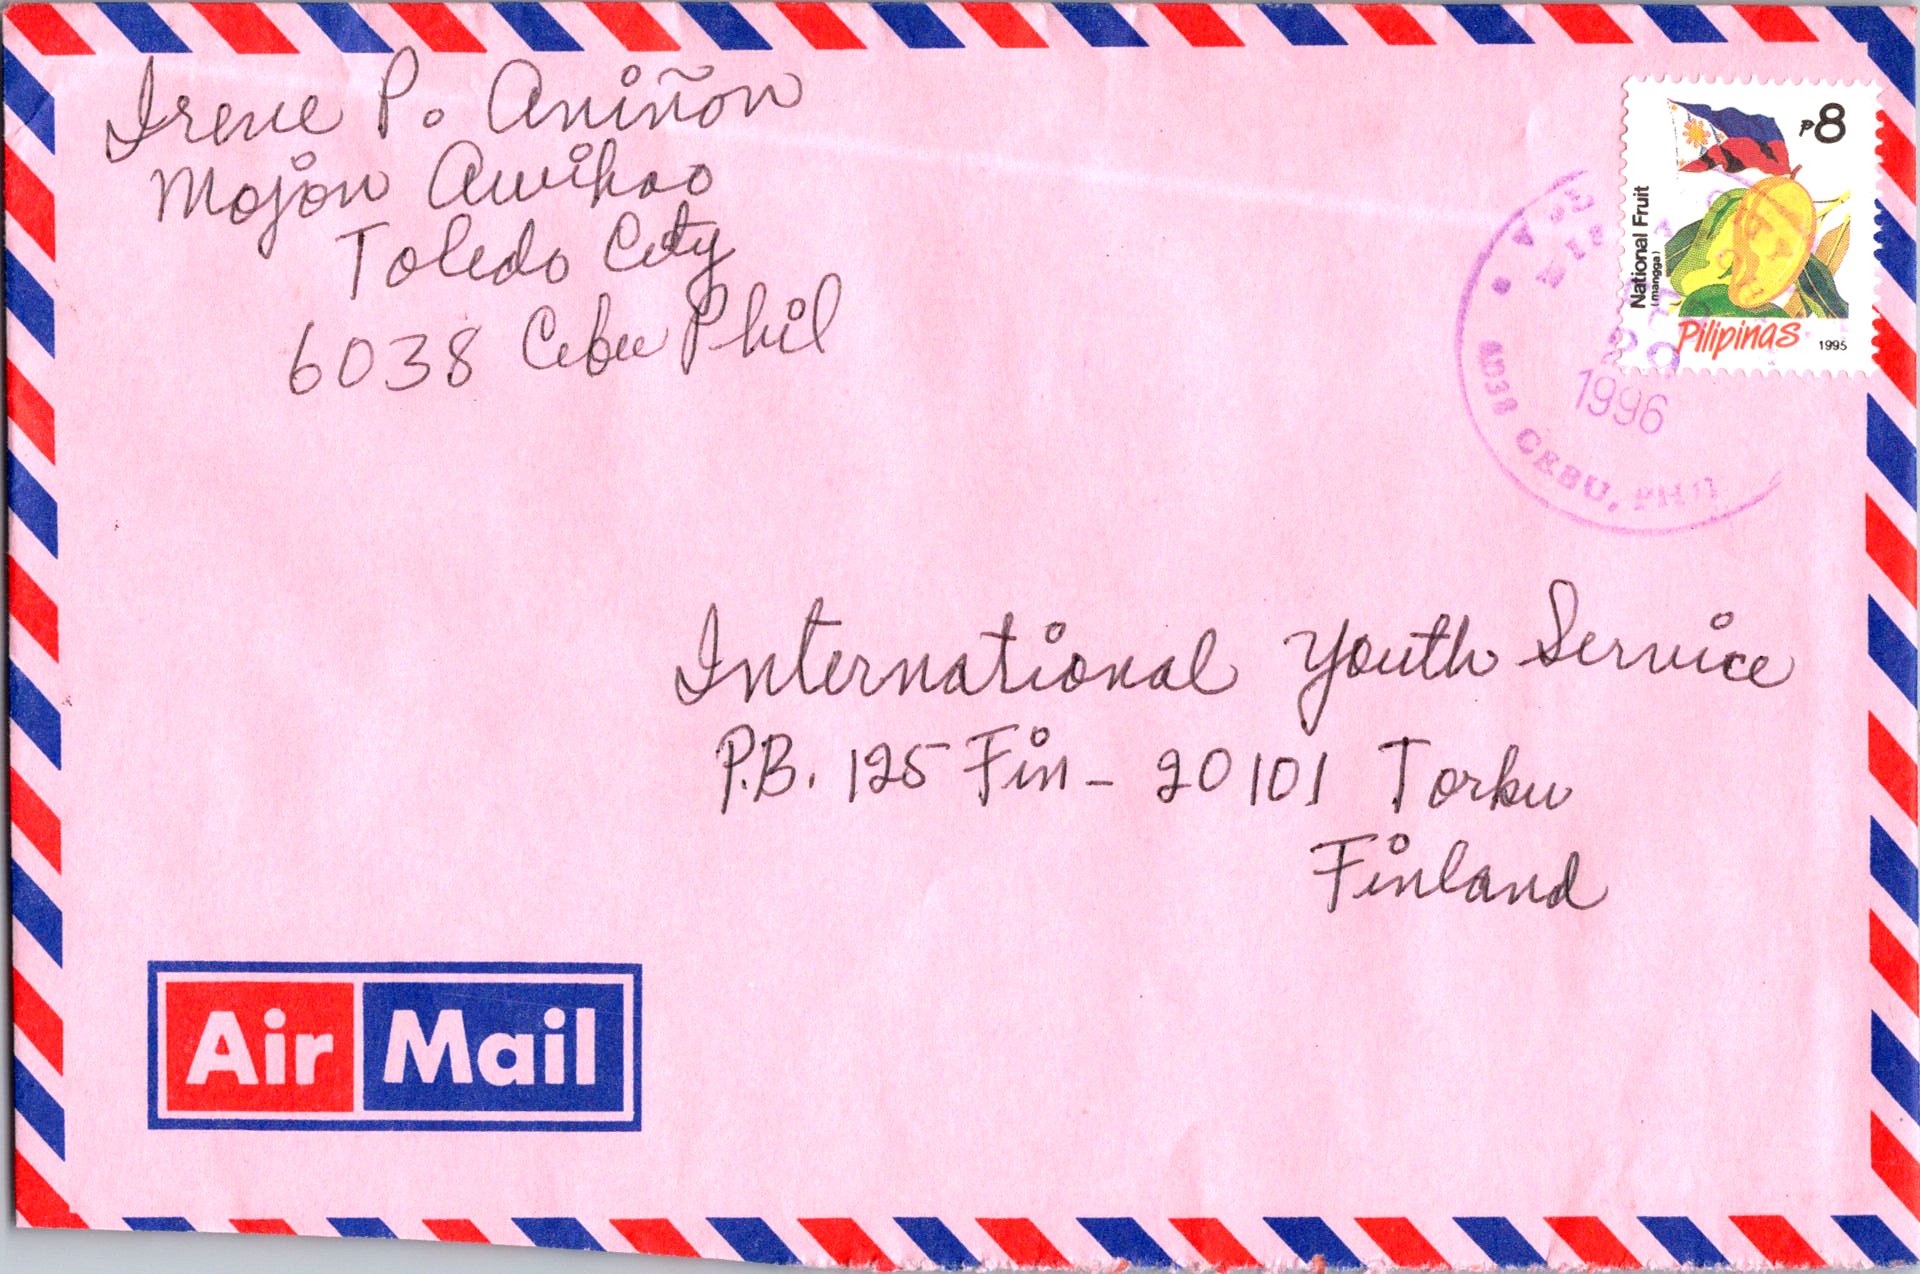 Irene P. Aniñon
Mojon Awihao
Toledo City
6038 Cebu Phil
₱8
National Fruit
(mangga)
Pilipinas
1995
20
1996
6038 CEBU, PHIL
International Youth Service
P.B. 125 Fin - 20101 Torku
Finland
Air Mail